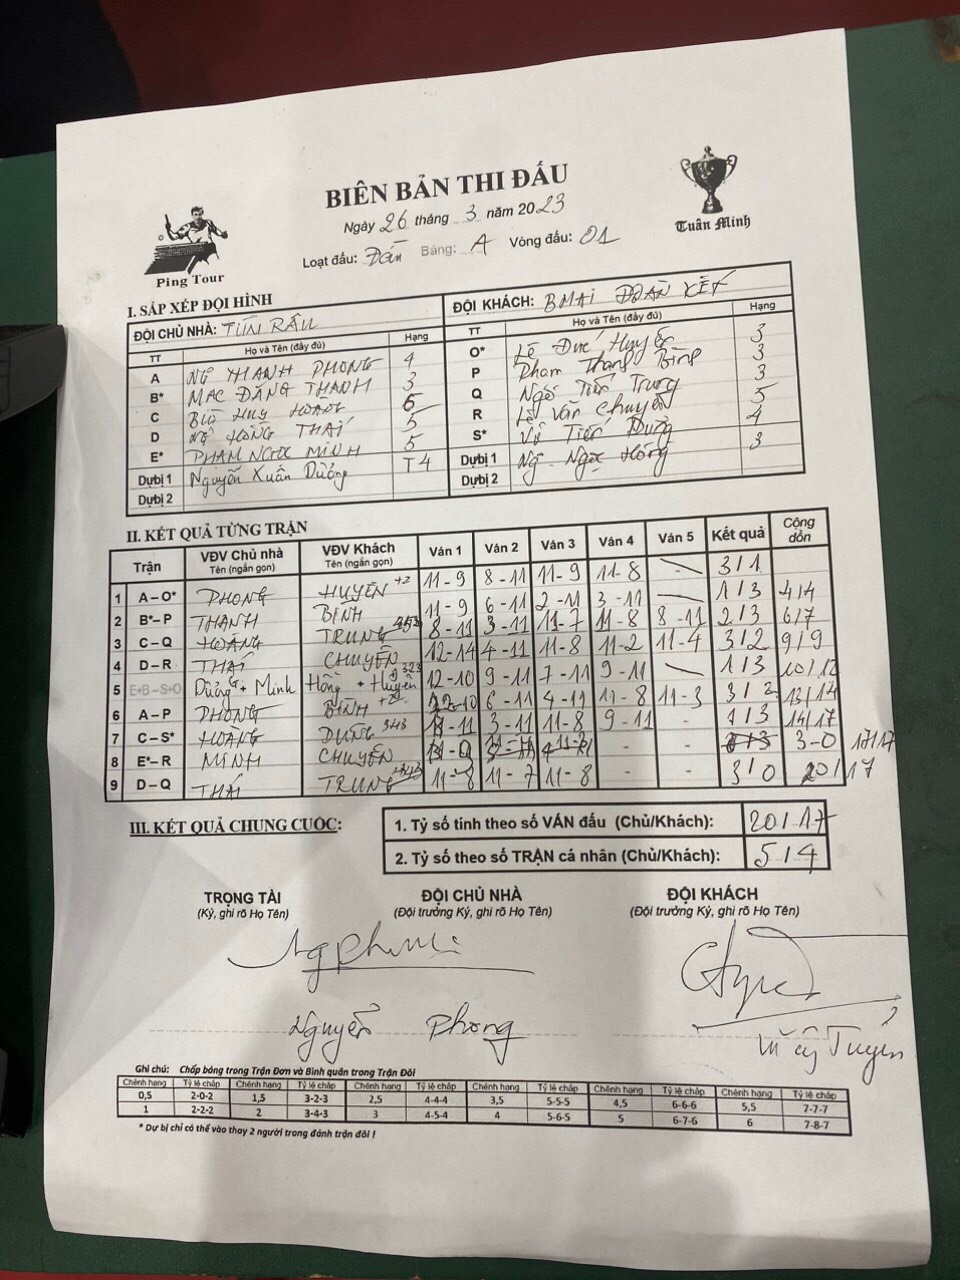 BIÊN BẢN THI ĐẤU
Ngày 26 tháng 3 năm 2023
Loạt đấu: Bảng: A Vòng đấu: 01
Ping Tour
Tuân Minh
I. SẮP XẾP ĐỘI HÌNH
ĐỘI CHỦ NHÀ: TÚN RÂU
ĐỘI KHÁCH: BMAI ĐOÀN KẾT
TT Họ và Tên (đầy đủ) Hạng
A NG THANH PHONG 4
B* MAC ĐĂNG THANH 3
C BÙI HUY HOÀNG 5
D NGÔ HỒNG THÁI 5
E* PHẠM NGỌC MINH 5
Dự bị 1 Nguyễn Xuân Dưỡng T4
Dự bị 2
TT Họ và Tên (đầy đủ) Hạng
O* Lê Đức Huyên 3
P Pham Thanh Bình 3
Q Ngô Tiến Trung 3
R Lê Văn Chuyên 5
S* Vũ Tiến Dũng 4
Dự bị 1 Ng. Ngọc Hồng 3
Dự bị 2
II. KẾT QUẢ TỪNG TRẬN
Trận VĐV Chủ nhà Tên (ngắn gọn) VĐV Khách Tên (ngắn gọn) Ván 1 Ván 2 Ván 3 Ván 4 Ván 5 Kết quả Cộng dồn
1 A – O* PHONG HUYÊN +2 11-9 8-11 11-9 11-8 - 3/1
2 B* – P THANH BINH 11-9 6-11 2-11 3-11 1/3 4/4
3 C – Q HOÀNG TRUNG 8-11 3-11 11-7 11-8 8-11 2/3 6/7
4 D – R THÁI CHUYÊN 12-14 4-11 11-8 11-2 11-4 3/2 9/9
5 E+B – S+O Dưỡng + Minh Hồng + Huyên 323 12-10 9-11 7-11 9-11 1/3 10/12
6 A – P PHONG BINH +2 6-11 4-11 11-8 11-3 3/2 13/14
7 C – S* HOÀNG DŨNG 343 3-11 11-8 9-11 1/3 14/17
8 E* – R MINH CHUYÊN - - 3-0 17/17
9 D – Q THÁI TRUNG 11-8 11-7 11-8 - - 3/0 20/17
III. KẾT QUẢ CHUNG CUỘC:
1. Tỷ số tính theo số VÁN đấu (Chủ/Khách): 20/17
2. Tỷ số theo số TRẬN cá nhân (Chủ/Khách): 5/4
TRỌNG TÀI ĐỘI CHỦ NHÀ ĐỘI KHÁCH
(Ký, ghi rõ Họ Tên) (Đội trưởng Ký, ghi rõ Họ Tên) (Đội trưởng Ký, ghi rõ Họ Tên)
Nguyễn Phong
Ghi chú: Chấp bóng trong Trận Đơn và Bình quân trong Trận Đôi
Chênh hạng Tỷ lệ chấp Chênh hạng Tỷ lệ chấp Chênh hạng Tỷ lệ chấp Chênh hạng Tỷ lệ chấp Chênh hạng Tỷ lệ chấp Chênh hạng Tỷ lệ chấp
0,5 2-0-2 1,5 3-2-3 2,5 4-4-4 3,5 5-5-5 4,5 6-6-6 5,5 7-7-7
1 2-2-2 2 3-4-3 3 4-5-4 4 5-6-5 5 6-7-6 6 7-8-7
* Dự bị chỉ có thể vào thay 2 người trong đánh trận đôi !